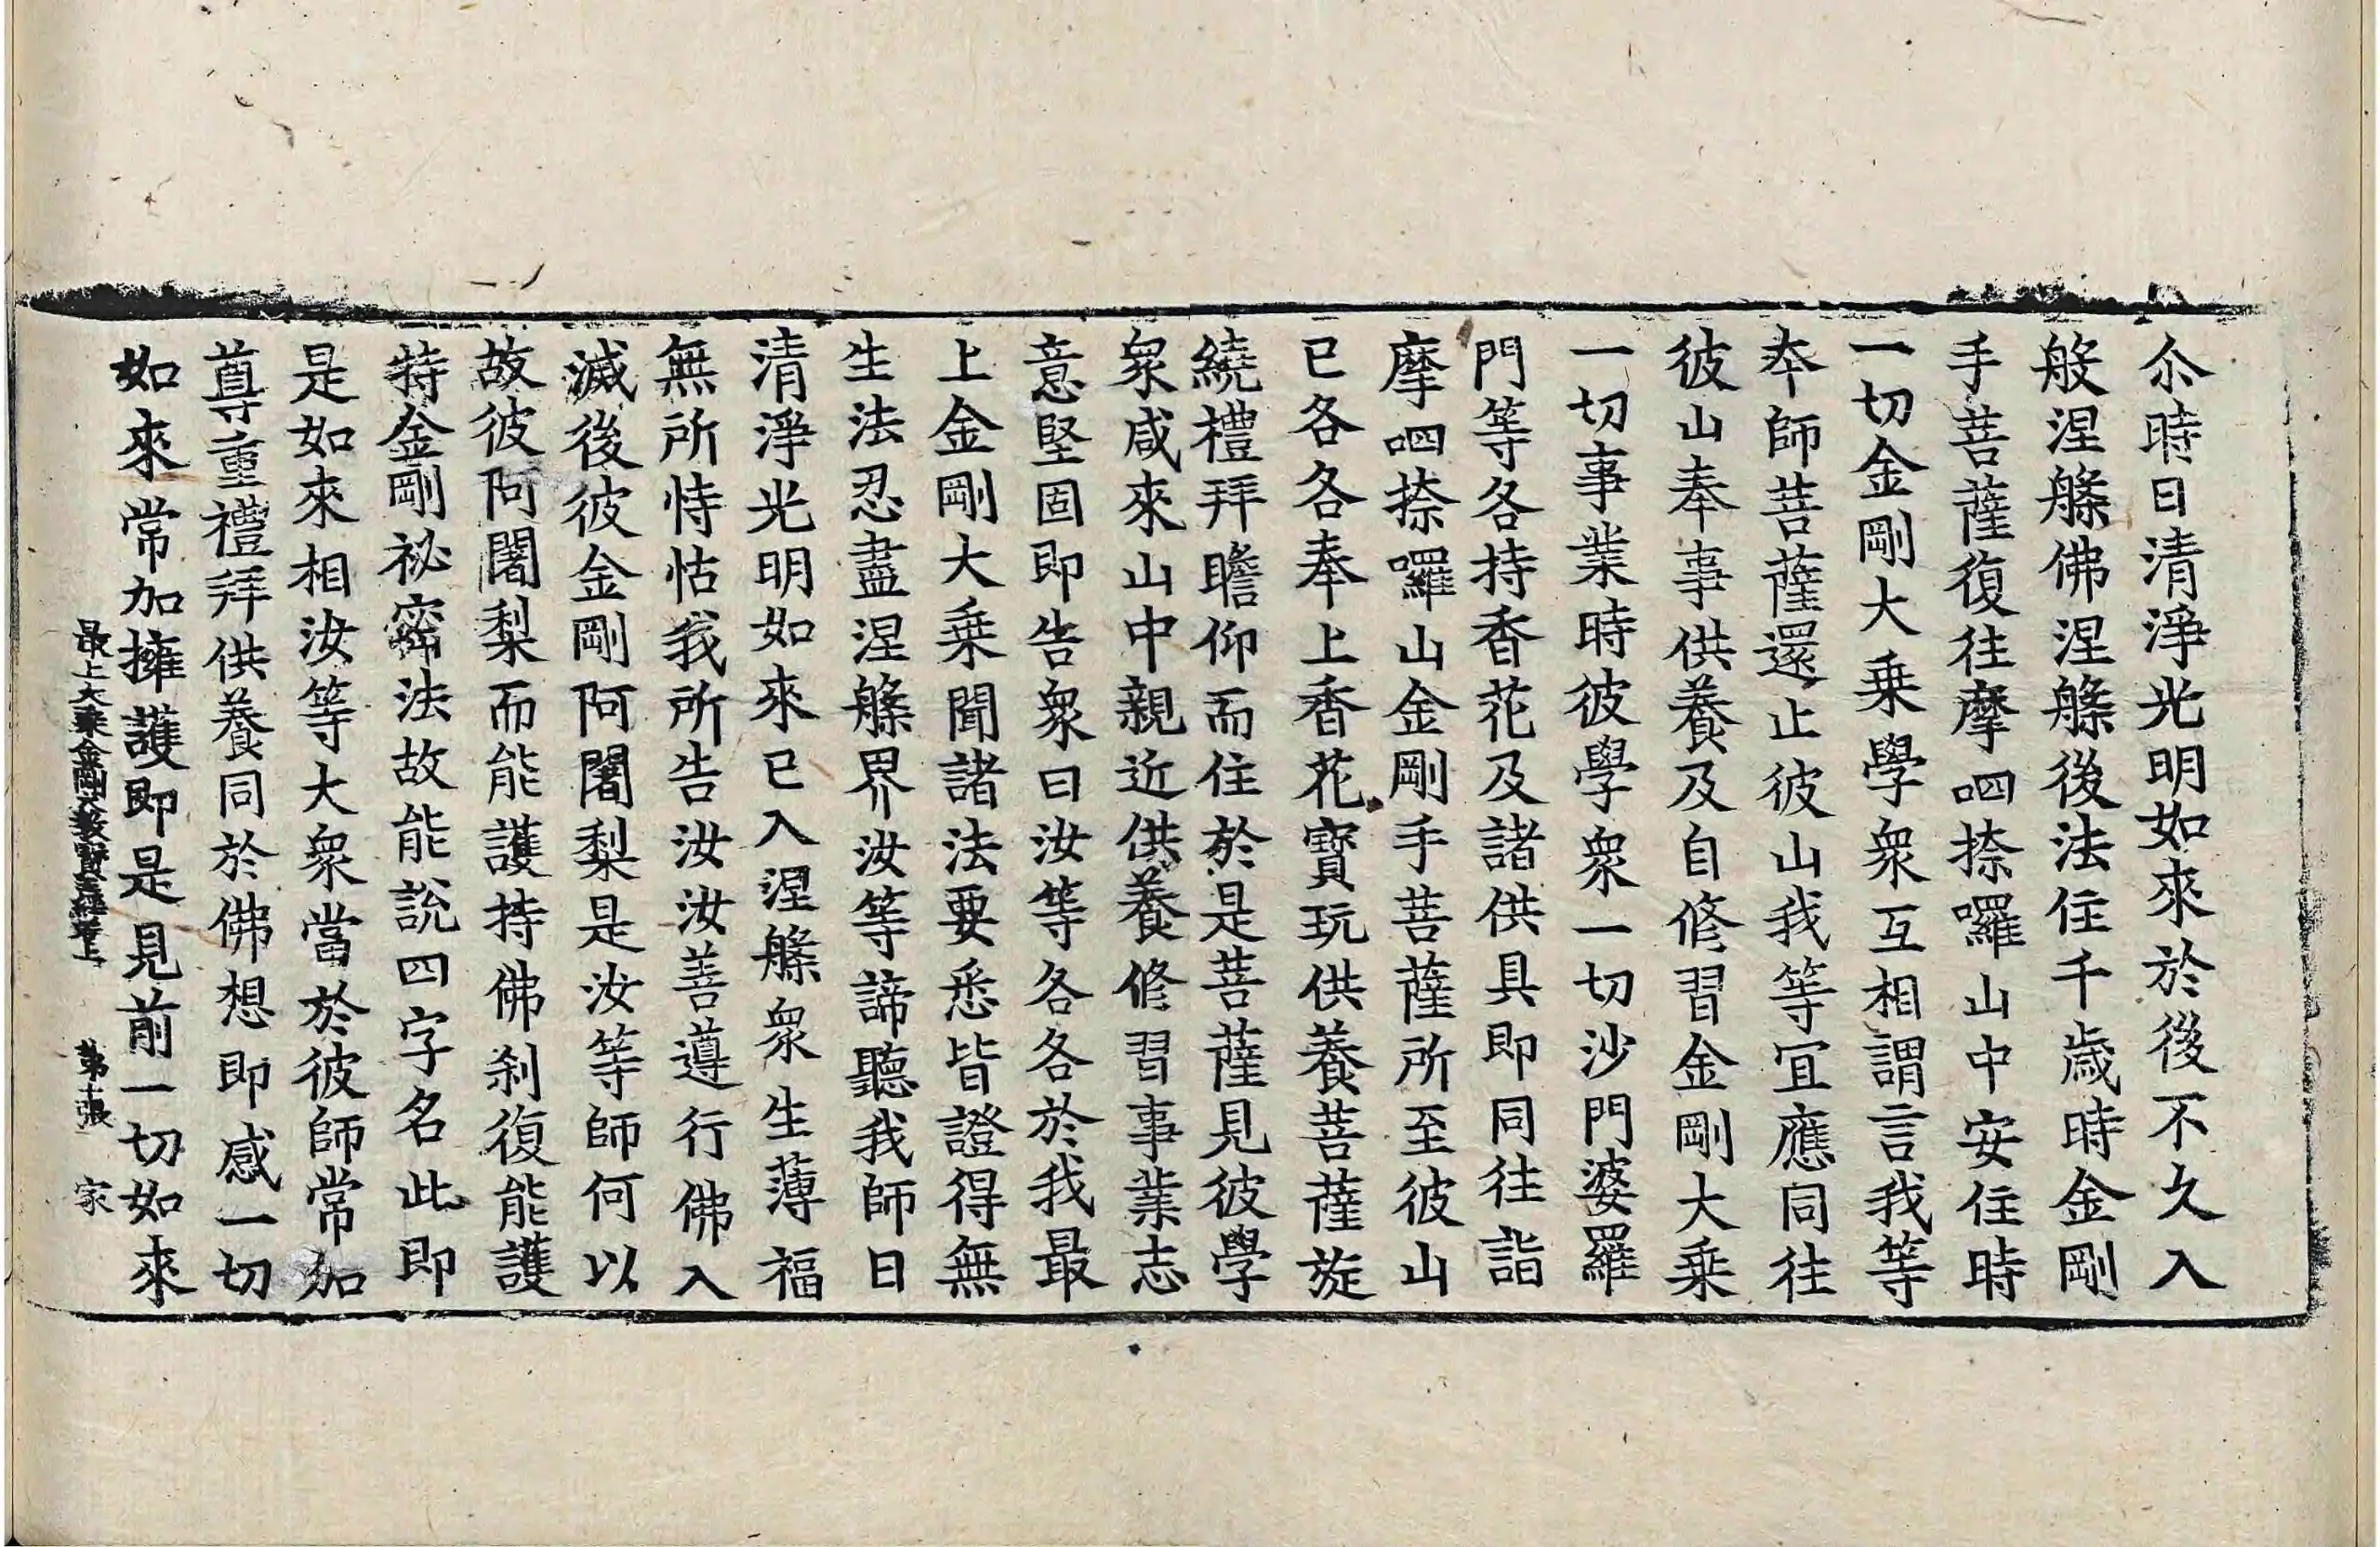 尒時日清淨光明如來於後不久入
般涅槃佛涅槃後法住千歳時金剛
手菩薩復往摩呬捺囉山中安住時
一切金剛大乗學衆互相謂言我等
本師菩薩還止彼山我等宜應同往
彼山奉事供養及自修習金剛大乗
一切事業時彼學衆一切沙門婆羅
門等各持香花及諸供具即同往詣
摩呬捺囉山金剛手菩薩所至彼山
已各各奉上香花寶玩供養菩薩旋
繞禮拜瞻仰而住於是菩薩見彼學
衆咸來山中親近供養修習事業志
意堅固即告衆曰汝等各各於我最
上金剛大乗聞諸法要悉皆證得無
生法忍盡涅槃界汝等諦聽我師日
清淨光明如來已入涅槃衆生薄福
無所恃怙我所告汝汝善遵行佛入
滅後彼金剛阿闍梨是汝等師何以
故彼阿闍梨而能護持佛刹復能護
持金剛祕密法故能說四字名此即
是如來相汝等大衆當於彼師常加
尊重禮拜供養同於佛想即感一切
如來常加擁護即是見前一切如來
最上大乗金剛大教寶王經卷上 第十張 家